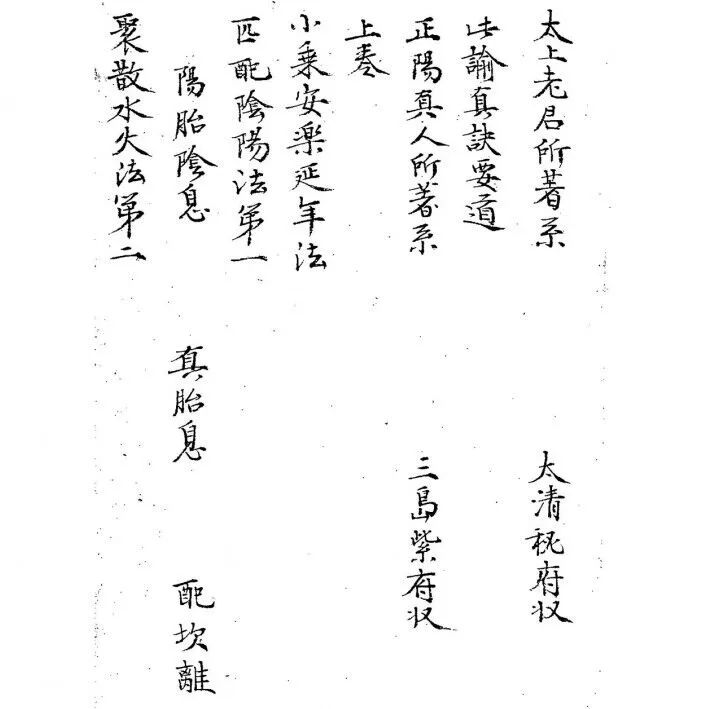 太上老君所著系 太清秘府収
此諭真訣要道
正陽真人所著系 三島紫府収
上巻
小乗安楽延年法
匹配陰陽法第一
陽胎陰息 真胎息 配坎離
聚散水火法第二